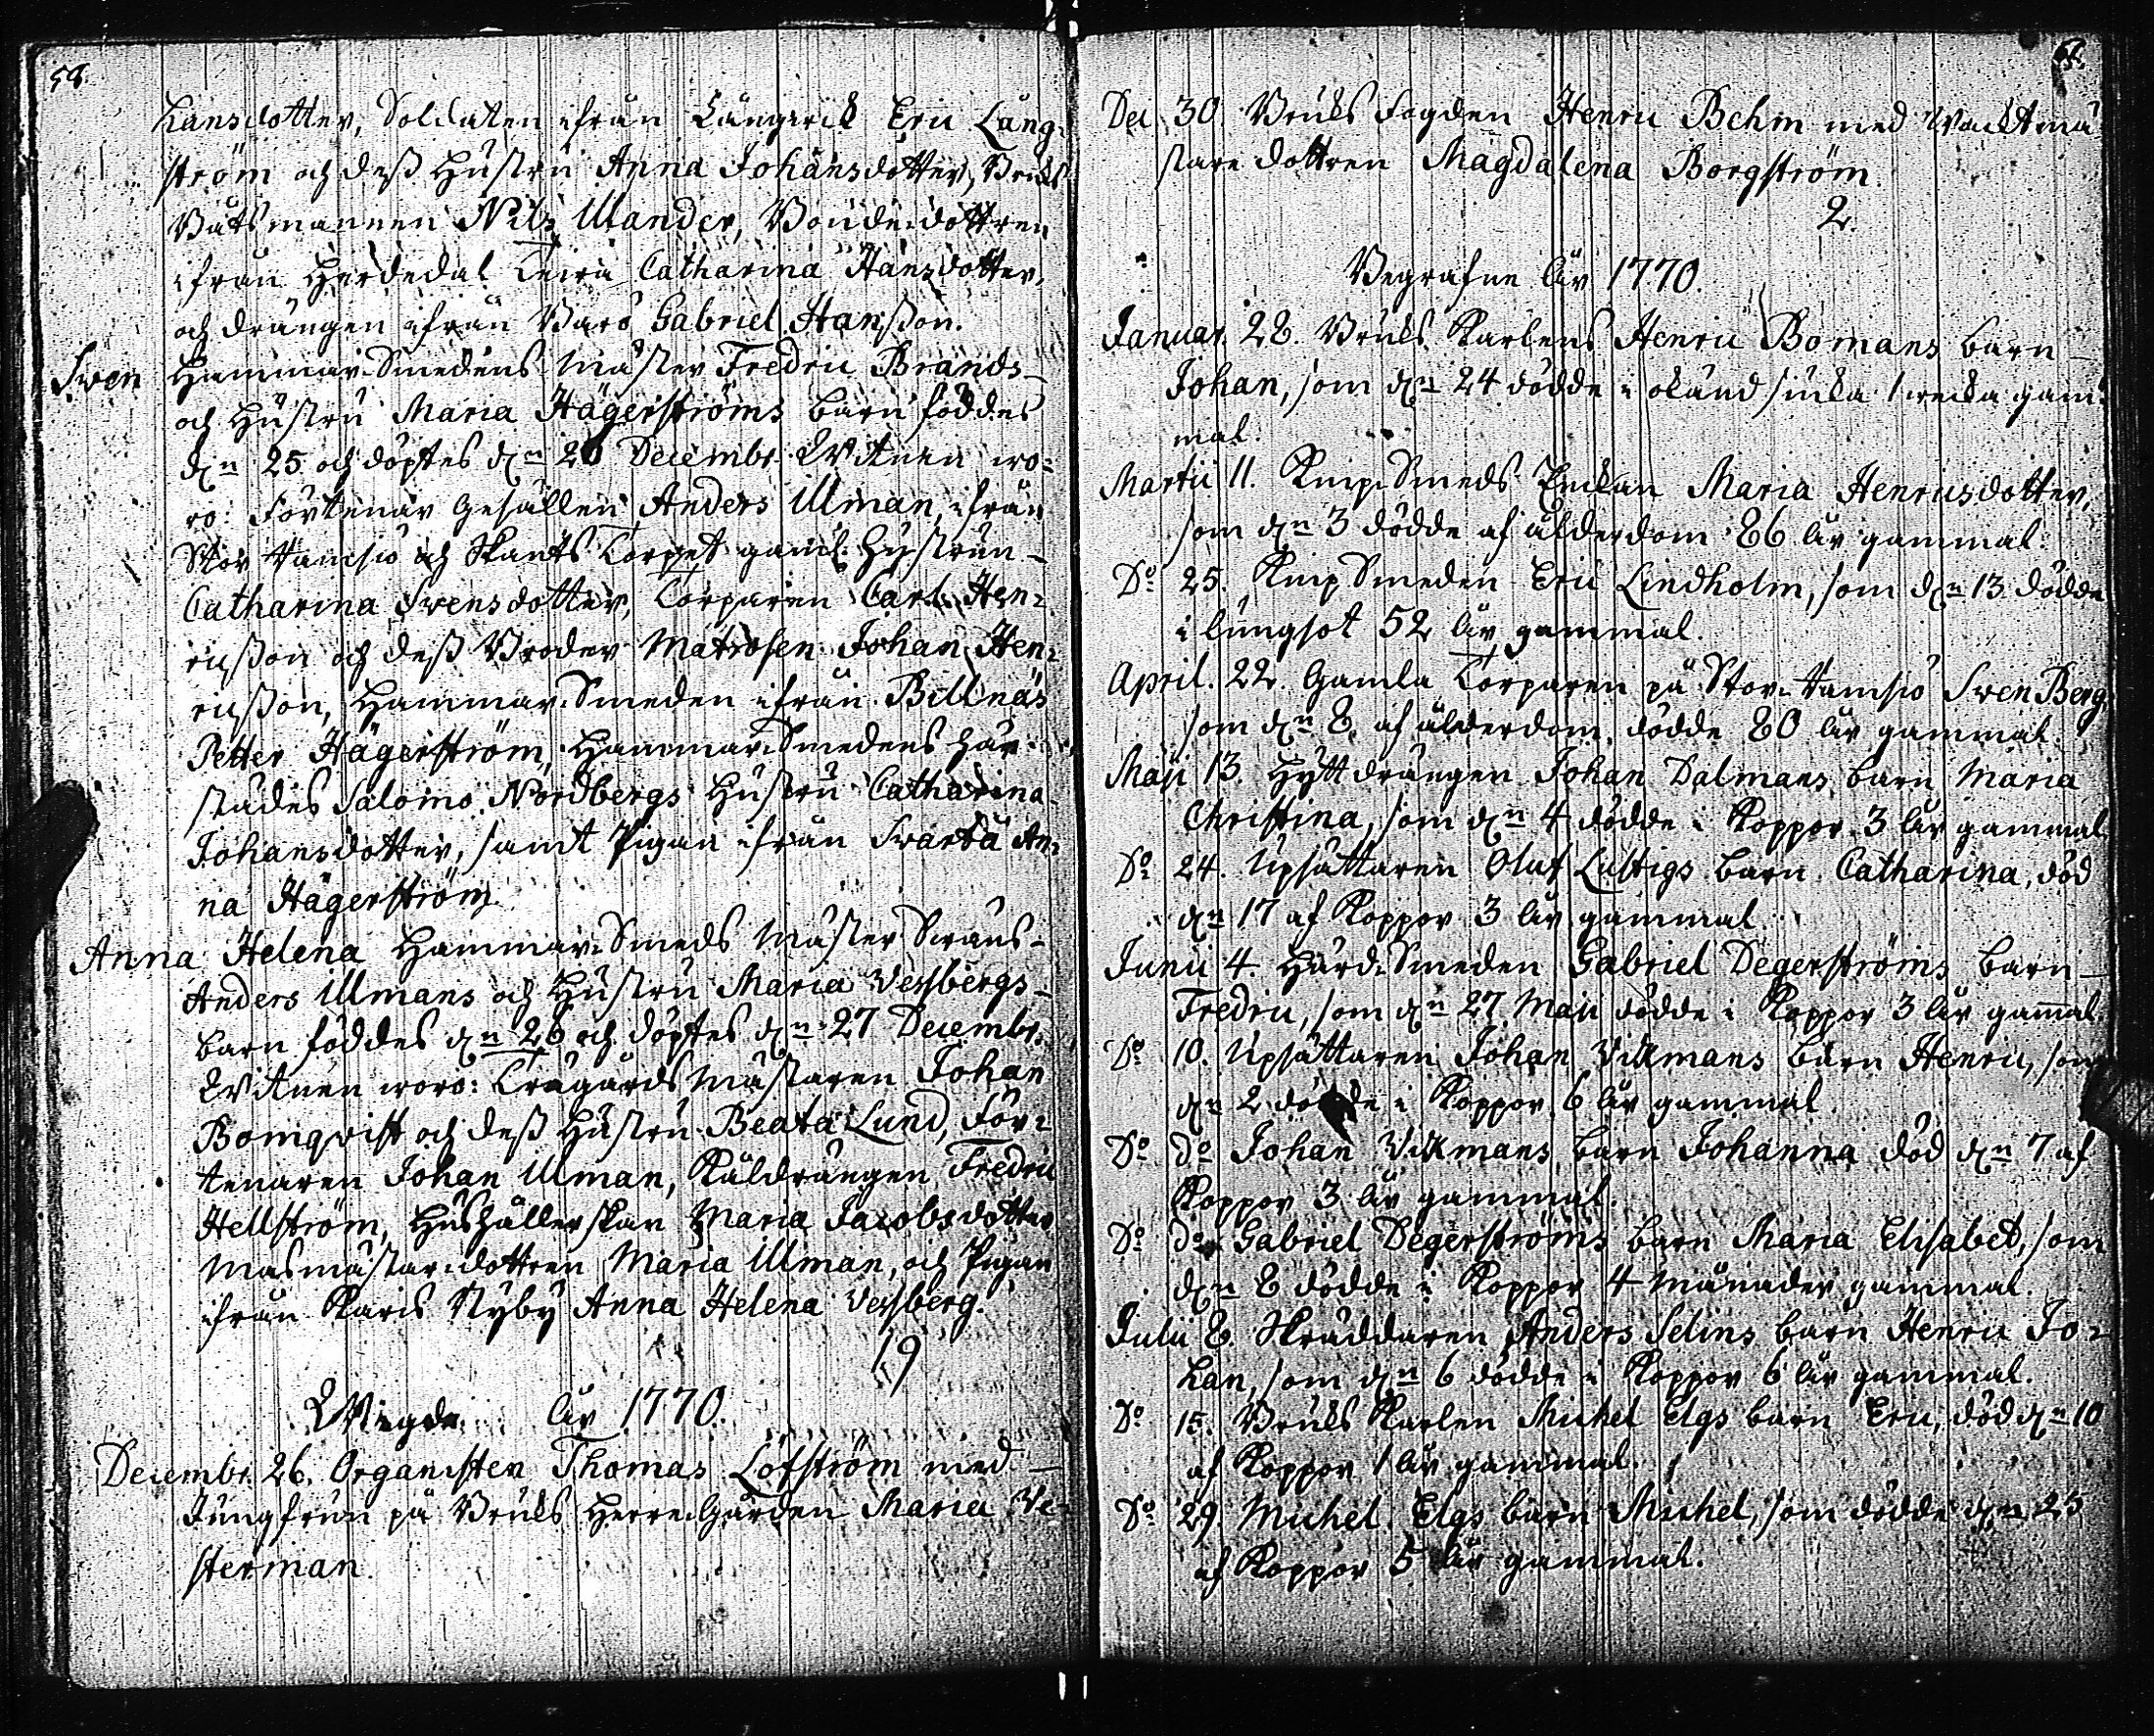 58.
hansdotter, Soldaten ifrån Långvik Eric Lång-
ström och dess Hustru Anna Johansdotter, Bruks
Båtsmannen Nils Ulander, Bonde dottren
ifrån Catharina Hansdotter,
och drängen ifrån Barö Gabriel Hansson.
Sven Hammar Smedens Mäster Fredric Brands-
och Hustru Maria Hägerströms barn föddes
dn 25 och döptes dn 26 Decembr. Witnen wo-
ro: Förtenar Gesällen Anders Ulman, ifrån
Stor Ramsiö och Torpet gaml. Hustrun
Catharina Svensdotter, Torparen Carl Hen-
ricsson och dess Broder Matrosen Johan Hen-
ricsson, Hammar Smeden ifrån Billnäs
Petter Hägerström, Hammar Smedens här-
städes Salomo Nordbergs Hustru Catharina
Johansdotter, samt Pigan ifrån Svartå An-
na Hägerström.
Anna Helena Hammar Smeds Mäster Sväns-
Anders Ulmans och Hustru Maria Vessbergs-
barn föddes dn 26 och döptes dn 27 Decembr.
Witnen woro: Trägårds Mästaren Johan
Bomqvist och dess Hustru Beata Lund, För-
tenaren Johan Ulman, Kåldrängen Fredric
Hellström, Hushållerskan Maria Jacobsdotter
Masmästar dottren Maria Ulman, och Pigan
ifrån Karis Nyby Anna Helena Vessberg.
19
Wigde åhr 1770.
Decembr. 26. Organisten Thomas Löfström med
Jungfrun på Bruks HerreGården Maria We-
sterman.
Dec. 30. Bruks Fogden Henric Behm med Wacktmä-
stare dottren Magdalena Borgström
2.
Begrafne åhr 1770.
Januar. 28. Bruks Karlens Henric Bomans barn
Johan, som dn 24 dödde i okänd siuka 1 wecka gam-
mal.
Martii 11. Knip Smeds Enckan Maria Henricsdotter,
som dn 3 dödde af ålderdom 86 åhr gammal.
Do 25. Knip Smeden Eric Lindholm, som dn 13 dödde
i lungsot 52 åhr gammal.
April. 22. Gamla Torparen på Stor Ramsiö Sven Berg,
som dn 8. af ålderdom dödde 80 åhr gammal.
Maji 13. Hytt drängen Johan Dalmans barn Maria
Christina, som dn 4 dödde i Koppor 3 åhr gammal
Do 24. Upsättaren Oluf Lustigs barn Catharina, död
dn 17 af Koppor 3 åhr gammal.
Junii 4. Härd Smeden Gabriel Degerströms barn
Fredric, som dn 27 Maji dödde i Koppor 3 åhr gammal.
Do 10. Upsättaren Johan Vikmans barn Henric, som
dn 2 dödde i Koppor 6 åhr gammal
Do do Johan Vikmans barn Johanna död dn 7 af
Koppor 3 åhr gammal.
Do do Gabriel Degerströms barn Maria Elisabet, som
dn 8 dödde i Koppor 4 månader gammal.
Julii 8. Skräddaren Anders Selins barn Henric Jo-
han, som dn 6 dödde i Koppor 6 åhr gammal.
Do 15. Bruks Karlen Michel Elgs barn Eric, död dn 10
af Koppor 1 åhr gammal.
Do 29. Michel Elgs barn Michel, som dödde dn 25
af Koppor 5 åhr gammal.